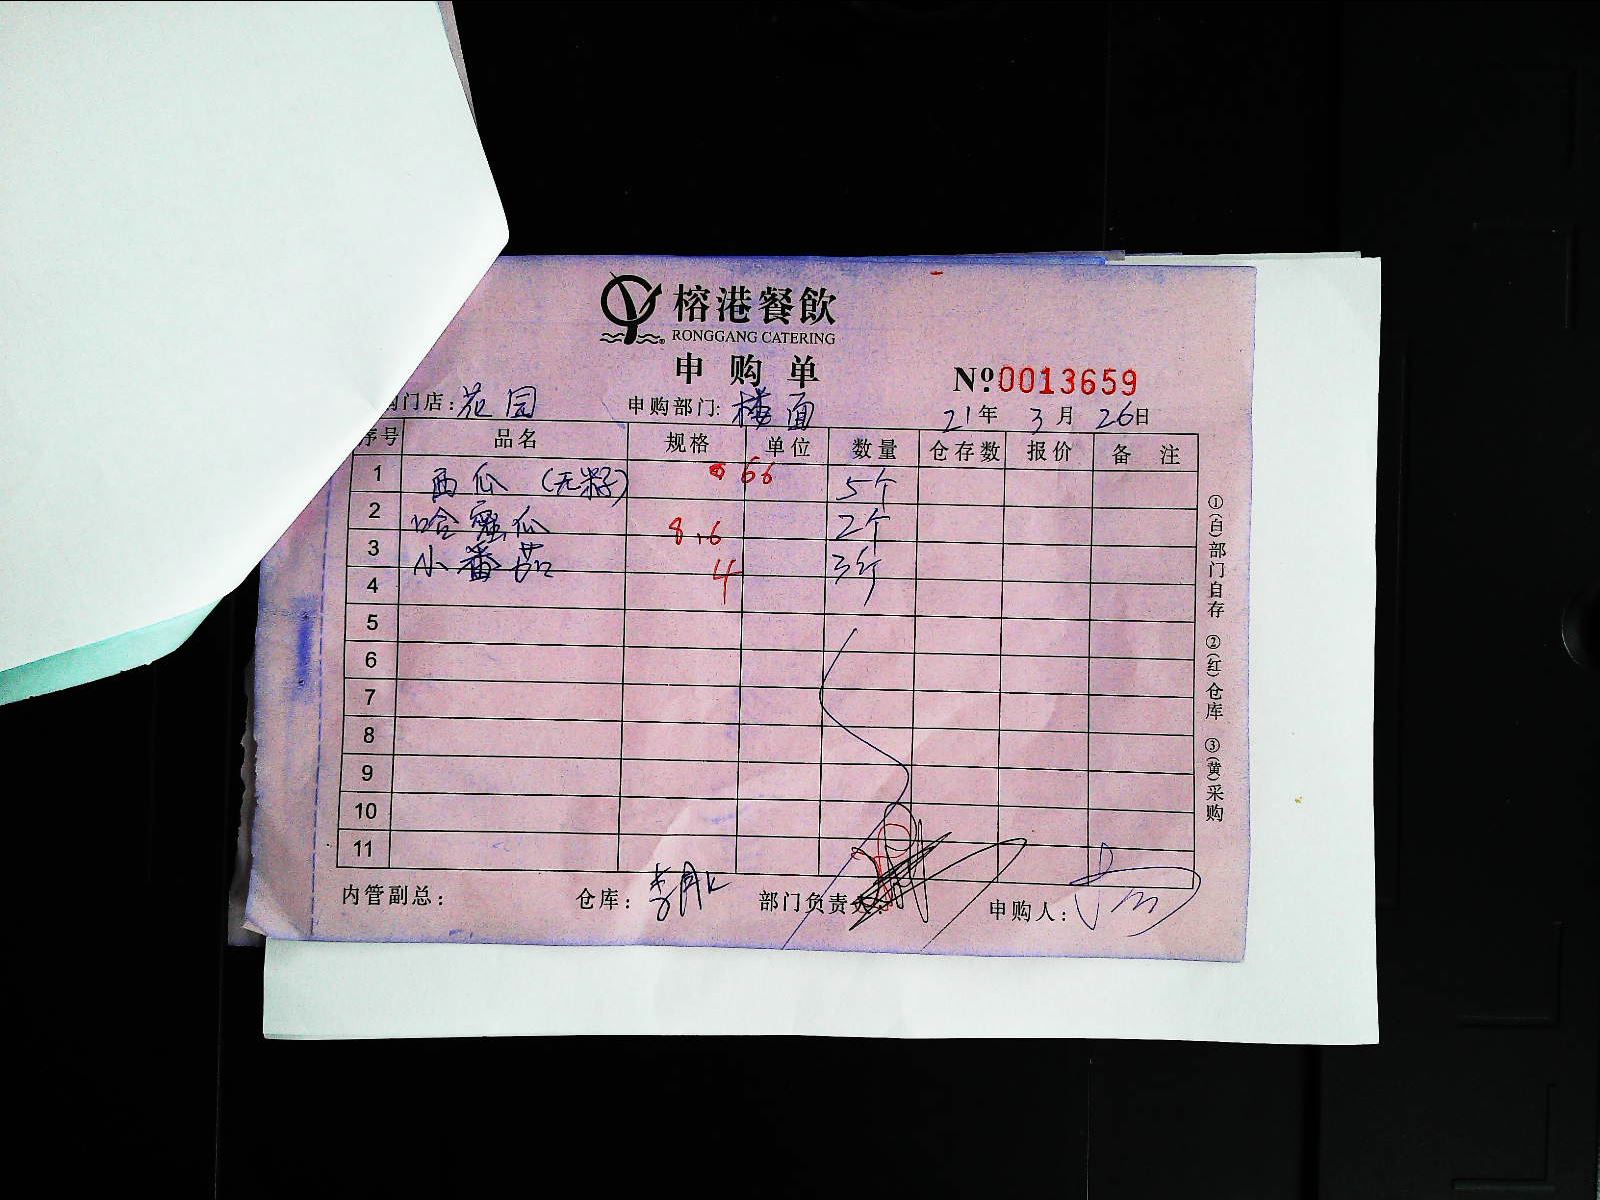 榕港餐飲
RONGGANG CATERING
申购单
№0013659
门店:花园 申购部门:楼面 21年3月26日
序号 品名 规格 单位 数量 仓存数 报价 备注
1 西瓜(无籽) 66 5个
2 哈蜜瓜 8.6 2个
3 小番茄 4 3斤
4
5
6
7
8
9
10
11
内管副总: 仓库: 部门负责人: 申购人:
①(白)部门自存 ②(红)仓库 ③(黄)采购